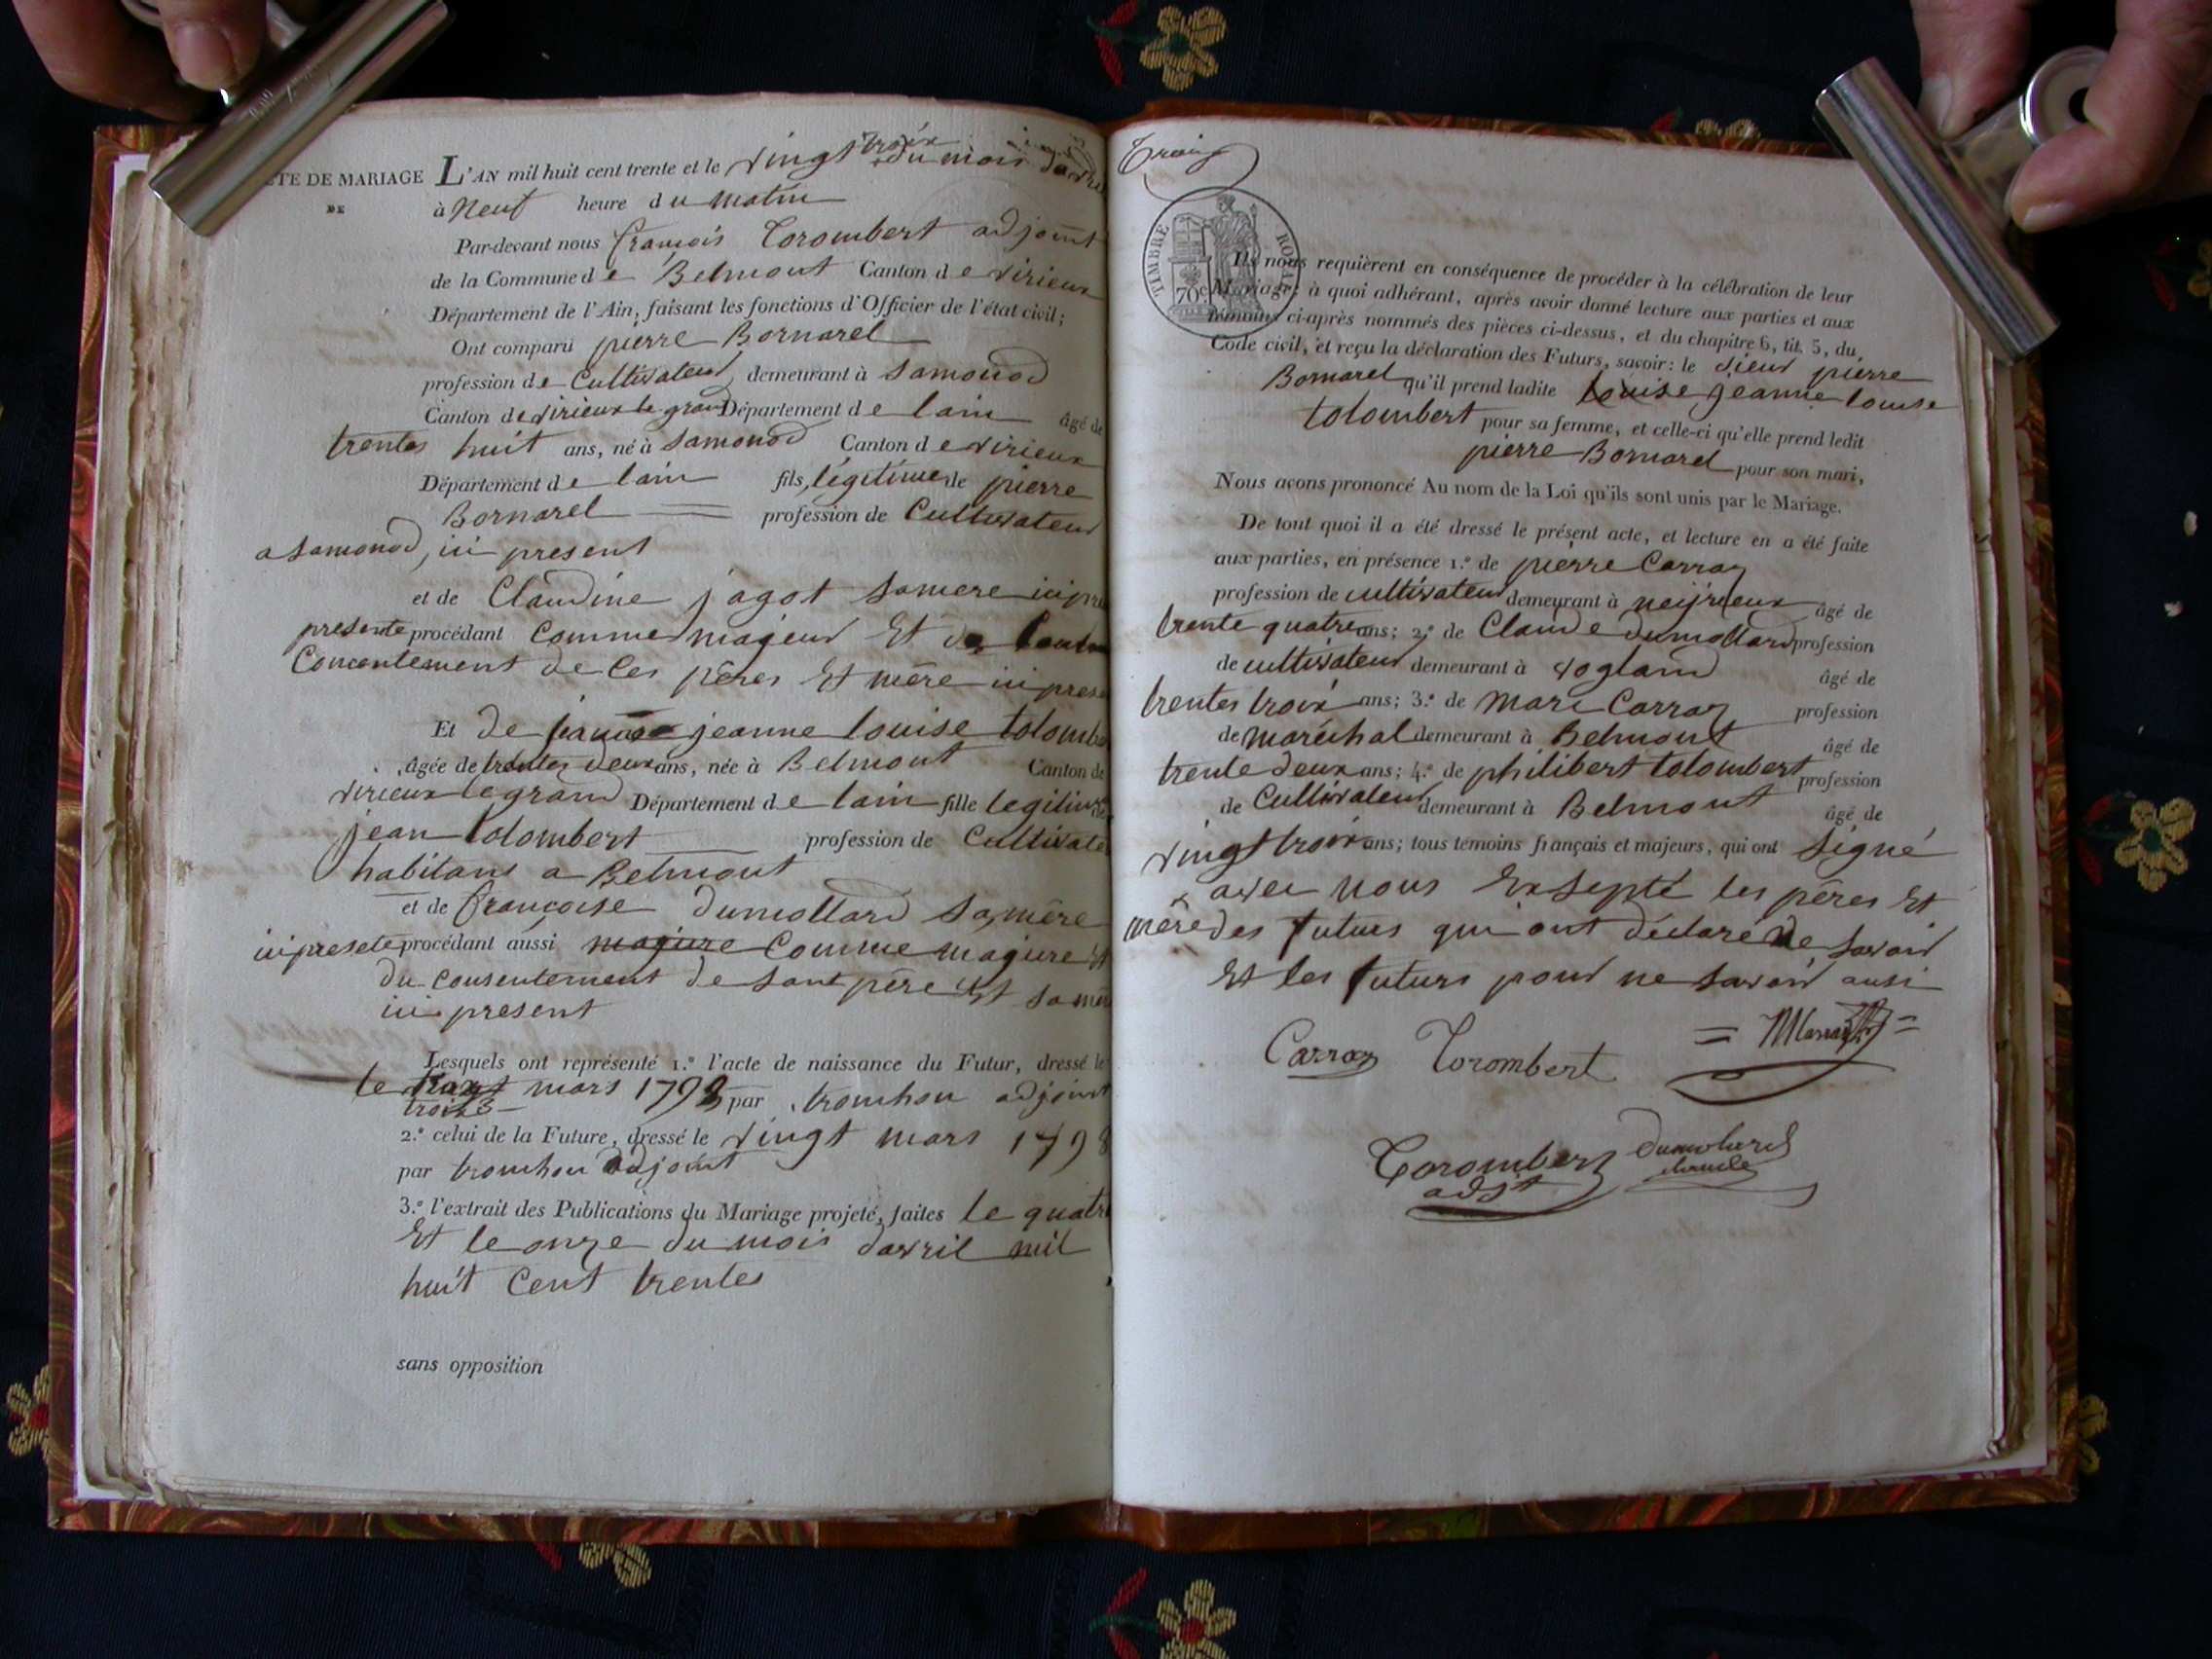 TE DE MARIAGE
DE
L'AN mil huit cent trente et le vingt troix du mois davri
à Neuf heure du matin
Par-devant nous françois Torombert adjoint
de la Commune de Belmont Canton de virieux
Département de l'Ain, faisant les fonctions d'Officier de l'état civil;
Ont comparu pierre Bornarel
profession de Cultivateur demeurant à Samonod
Canton de virieux le grand Département de lain âgé de
trentes huit ans, né à Samonod Canton de virieux
Département de lain fils légitime de pierre
Bornarel profession de Cultivateur
a Samonod, ici present
et de Claudine jagot Samere ici pre
presente procédant Comme majeur Et de
Concentement de Ces pères Et mère ici prese
Et de jeanne louise tolombe
âgée de trentes deux ans, née à Belmont Canton de
virieux le grand Département de lain fille legitime de
jean tolombert profession de Cultivate
habitans a Belmont
et de françoise dumollard Sa mère
ici presete procédant aussi majure Comme majure Et
du consentement de Sont père Et Sa mèr
ici present
Lesquels ont représenté 1.º l'acte de naissance du Futur, dressé le
le mars 1792 par tronchon adjoint
troix 3
2.º celui de la Future, dressé le vingt mars 1798
par tronchon adjoint
3.º l'extrait des Publications du Mariage projeté, faites le quatr
Et le onze du mois davril mil
huit Cent trentes
sans opposition
TIMBRE ROYAL
70c
Ils nous requièrent en conséquence de procéder à la célébration de leur
Mariage; à quoi adhérant, après avoir donné lecture aux parties et aux
témoins ci-après nommés des pièces ci-dessus, et du chapitre 6, tit. 5, du
Code civil, et reçu la déclaration des Futurs, savoir: le Sieur pierre
Bornarel qu'il prend ladite Louise jeanne louise
tolombert pour sa femme, et celle-ci qu'elle prend ledit
pierre Bornarel pour son mari,
Nous avons prononcé Au nom de la Loi qu'ils sont unis par le Mariage.
De tout quoi il a été dressé le présent acte, et lecture en a été faite
aux parties, en présence 1.º de pierre Carraz
profession de cultivateur demeurant à neijrieux âgé de
trente quatre ans; 2.º de Claude dumollard profession
de cultivateur demeurant à vogland âgé de
trentes troix ans; 3.º de Marc Carraz profession
de maréchal demeurant à Belmont âgé de
trente deux ans; 4.º de philibert tolombert profession
de Cultivateur demeurant à Belmont âgé de
vingt troix ans; tous témoins français et majeurs, qui ont Signé
avec nous Exsepté les pères Et
mère des futurs qui ont déclaré ne savoir
Et les futurs pour ne savoir ausi
Carraz Torombert
Torombert dumolard
adjt claude